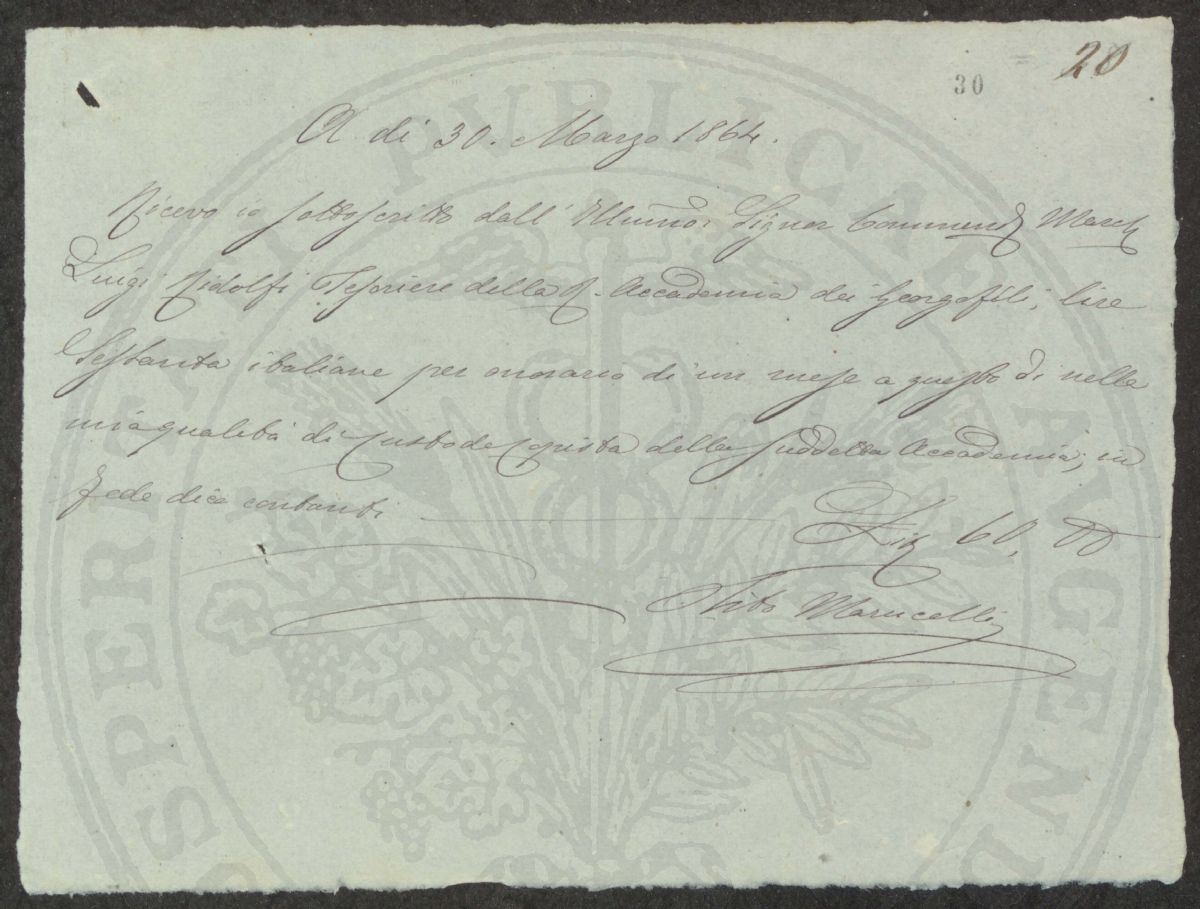 20
30
A di 30. Marzo 1864.
Ricevo io sottoscritto dall' Illumo: Signor Commend March
Luigi Ridolfi Tesoriere della R. Accademia dei Georgofili, lire
Sessanta italiane per onorario di un mese a questo dì nella
mia qualità di Custode Copista della suddetta Accademia; in
fede dico contanti
60,
Tito Marucelli
PROSPERITATI PUBLICAE AUGENDAE